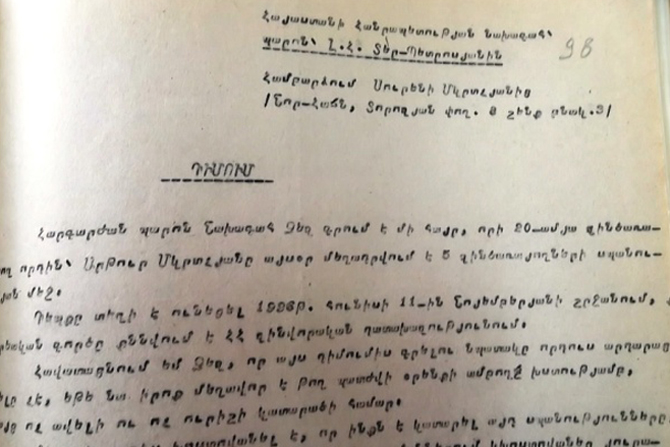 Հայաստանի Հանրապետության նախագահ՝
պարոն՝ Լ.Հ. Տեր-Պետրոսյանին
98
Համբարձում Սուրենի Մկրտչյանից
/Նոր-Հաճն, Տորոզյան փող. 8 շենք բնակ.3/
ԴԻՄՈՒՄ
Հարգարժան պարոն Նախագահ Ձեզ գրում է մի հայր, որի 20-ամյա զինծառա-
ող որդին՝ Արթուր Մկրտչյանը այսօր մեղադրվում է 5 զինծառայողների սպանու-
յան մեջ.
Դեպքը տեղի է ունեցել 1996թ. հունիսի 11-ին Նոյեմբերյանի շրջանում,
րեական գործը քննվում է ՀՀ զինվորական դատախազությունում.
Հավատացնում եմ Ձեզ, որ այս դիմումիս գրելու նպատակը որդուս արդարաց
նելը չէ, եթե նա իրոք մեղավոր է թող պատժվի օրենքի ամբողջ խստությամբ,
այց ոչ ավելի ու ոչ ուրիշի կատարածի համար.
խոստովանել է, որ ինքն է կատարել այդ սպանությունները